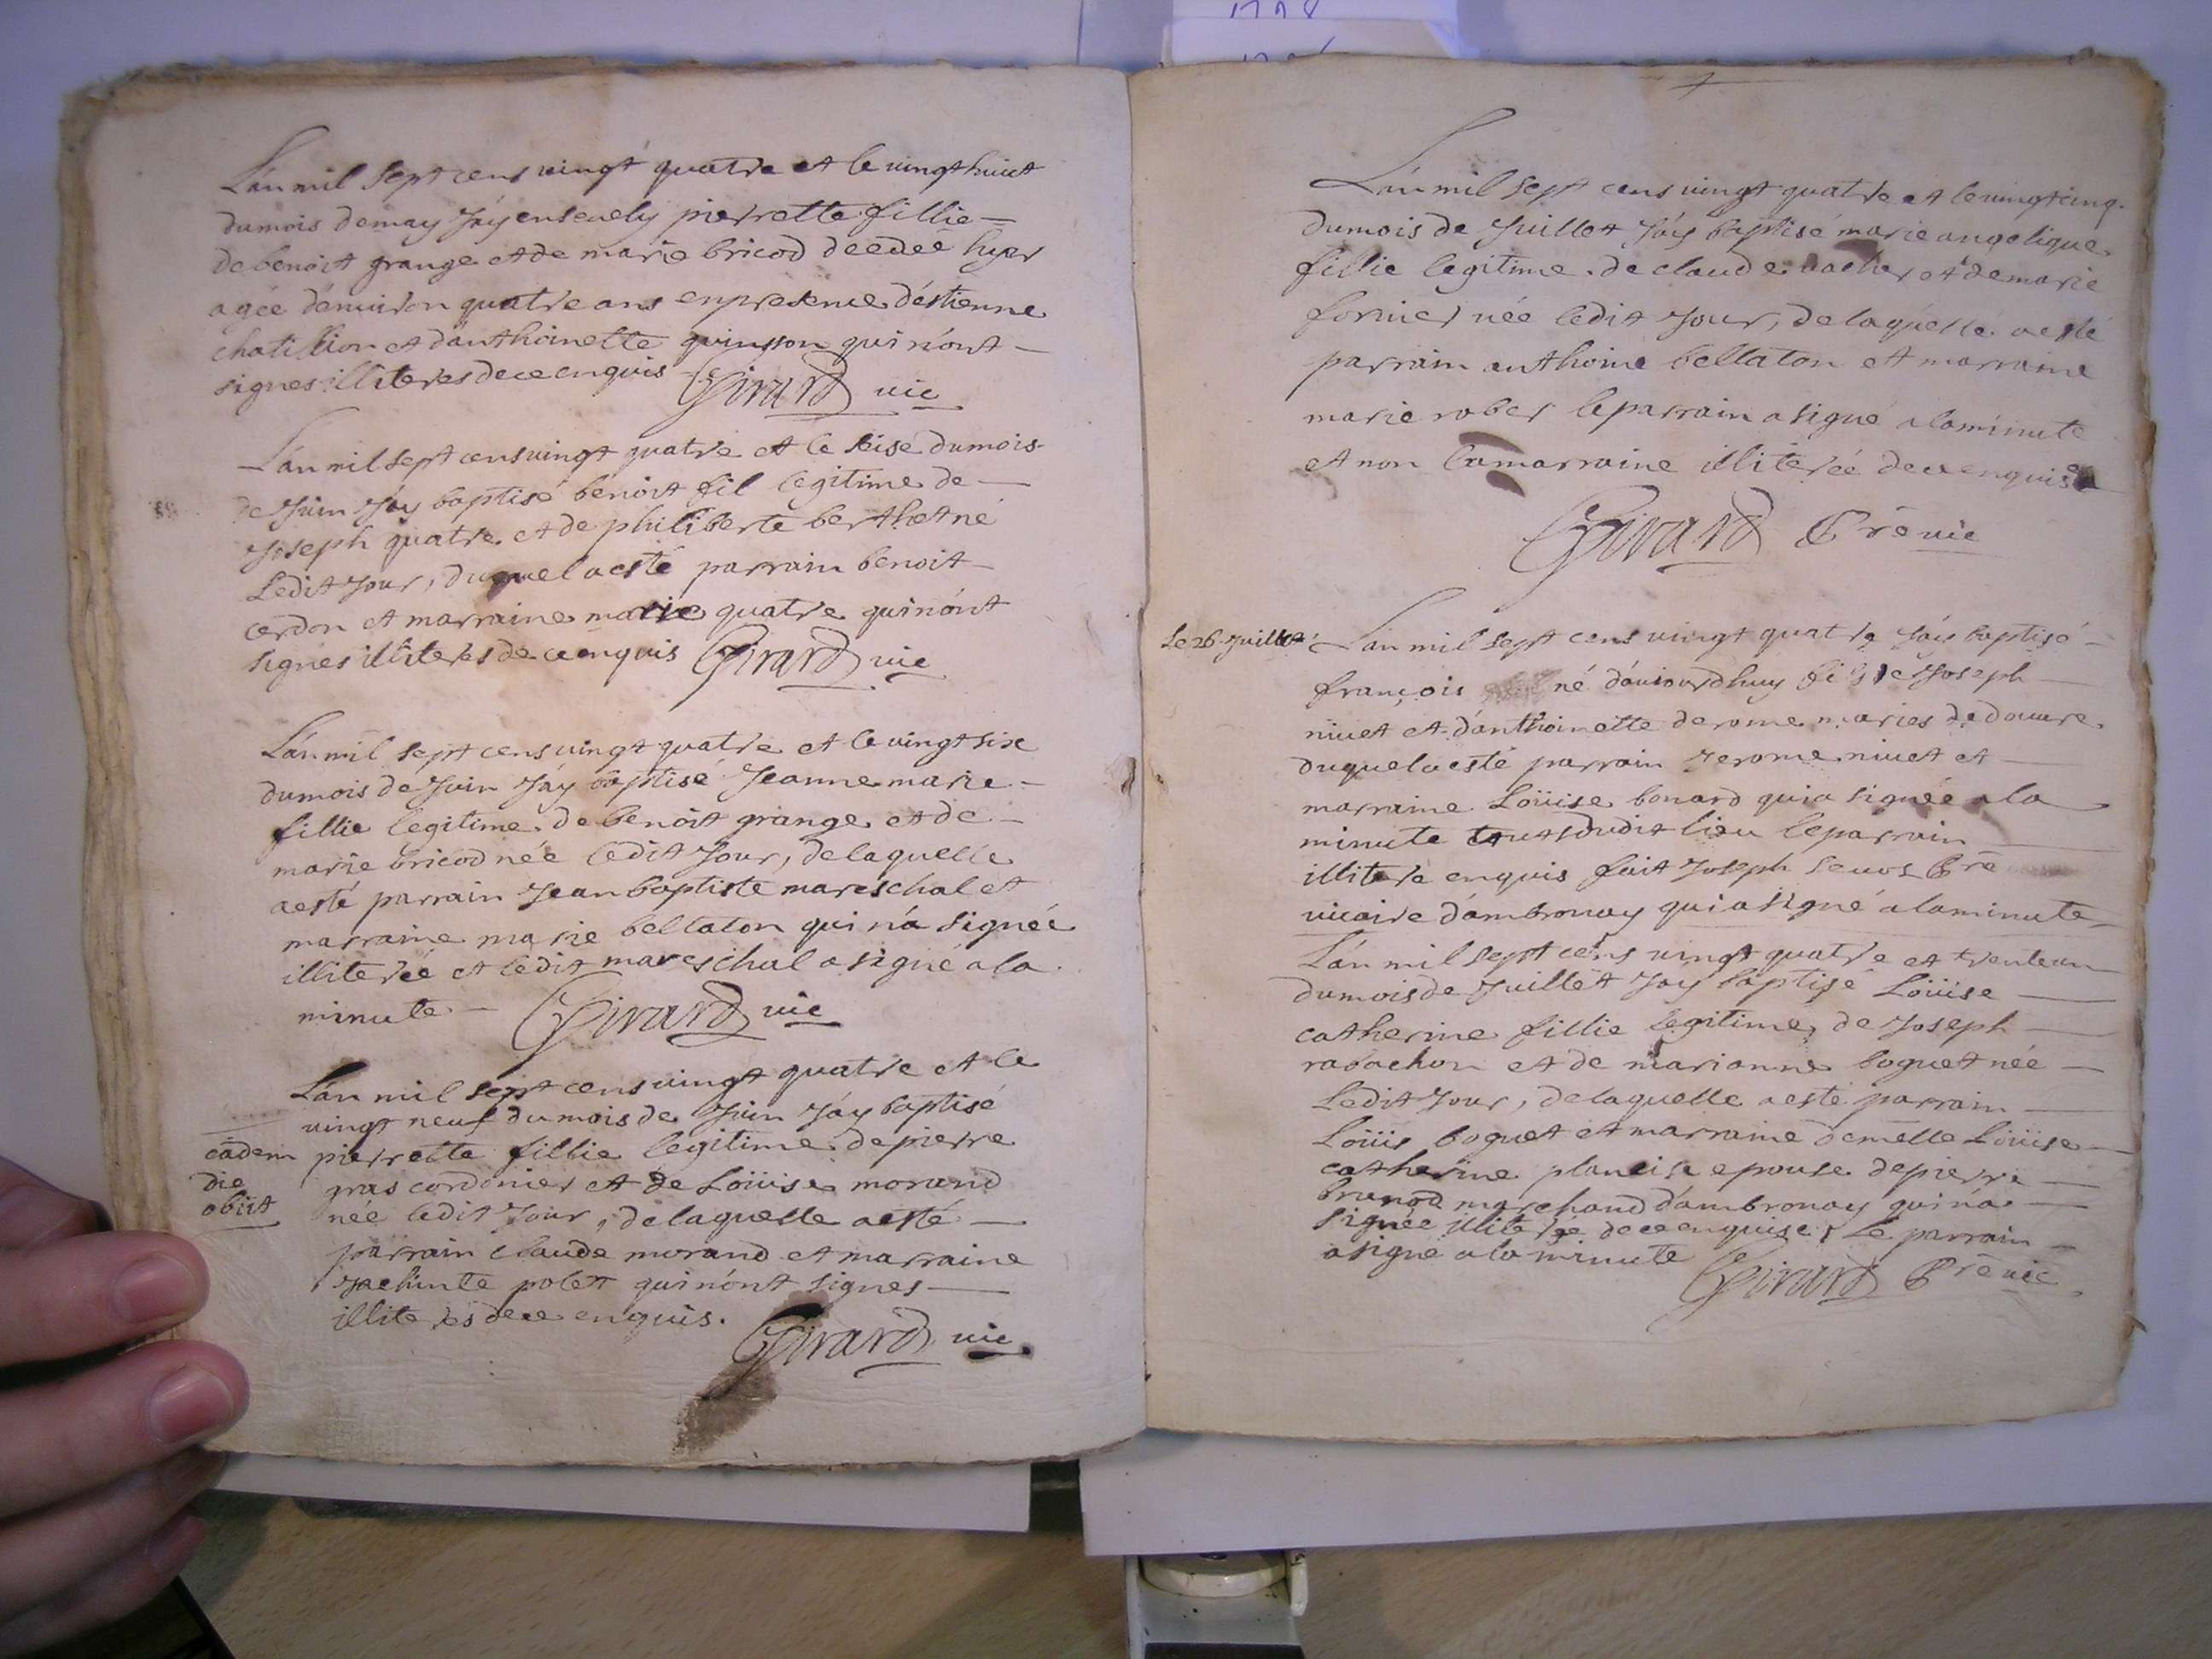 L'an mil sept cens vingt quatre et le vingt huict
du mois de may J'ay ensevely pierrette fillie
de benoit grange et de marie bricod decedeé hyer
agée d'environ quatre ans en presence d'estienne
chatillion et d'anthoinette quinson qui n'ont
signes illiteres de ce enquis Girard vic
L'an mil sept cens vingt quatre et le seise du mois
de Juin J'ay baptisé benoit fil legitime de
Joseph quatre et de philiberte berthet né
Ledit Jour, duquel a esté parrain benoit
cerdon et marraine marie quatre qui n'ont
signes illiteres de ce enquis Girard vic
L'an mil sept cens vingt quatre et le vingt six
du mois de Juin J'ay baptisé Jeanne marie
fillie legitime de benoit grange et de
marie bricod née ledit Jour, de laquelle
a esté parrain Jean baptiste mareschal et
marraine marie bellaton qui n'a signée
illiterée et ledit mareschal a signé a la
minute Girard vic
L'an mil sept cens vingt quatre et le
vingt neuf du mois de Juin J'ay baptisé
eadem pierrette fillie legitime de pierre
die gras cordonier et de Loüise morand
obiit née ledit Jour, de laquelle a esté
parrain claude morand et marraine
Jachinte polet qui n'ont signes
illiterés de ce enquis.
Girard vic
L'an mil sept cens vingt quatre et le vingt cinq
du mois de Juillet J'ay baptisé marie angelique
fillie legitime de claude vacher et de marie
fornier née ledit Jour, de laquelle a esté
parrain anthoine bellaton et marraine
marie rober le parrain a signé a la minute
et non la marraine illiterée de ce enquise
Girard Prē vic
Le 26 Juillet L'an mil sept cens vingt quatre J'ay baptisé
françois né d'aujourdhuy fils de Joseph
nivet et d'anthoinette derome maries de douvre
duquel a esté parrain Jerome nivet et
marraine Loüise bonard qui a signée a la
minute touts dudit lieu le parrain
illitere enquis fait Joseph Prē
vicaire d'ambronay qui a signé a la minute
L'an mil sept cens vingt quatre et trente un
du mois de Juillet J'ay baptisé Loüise
catherine fillie legitime de Joseph
rabachon et de marianne boguet née
Ledit Jour, de laquelle a esté parrain
Loüis boguet et marraine demelle Loüise
catherine epouse de pierre
brunod marchand d'ambronay qui n'a
signée illiterée de ce enquise, Le parrain
a signé a la minute Girard Prē vic